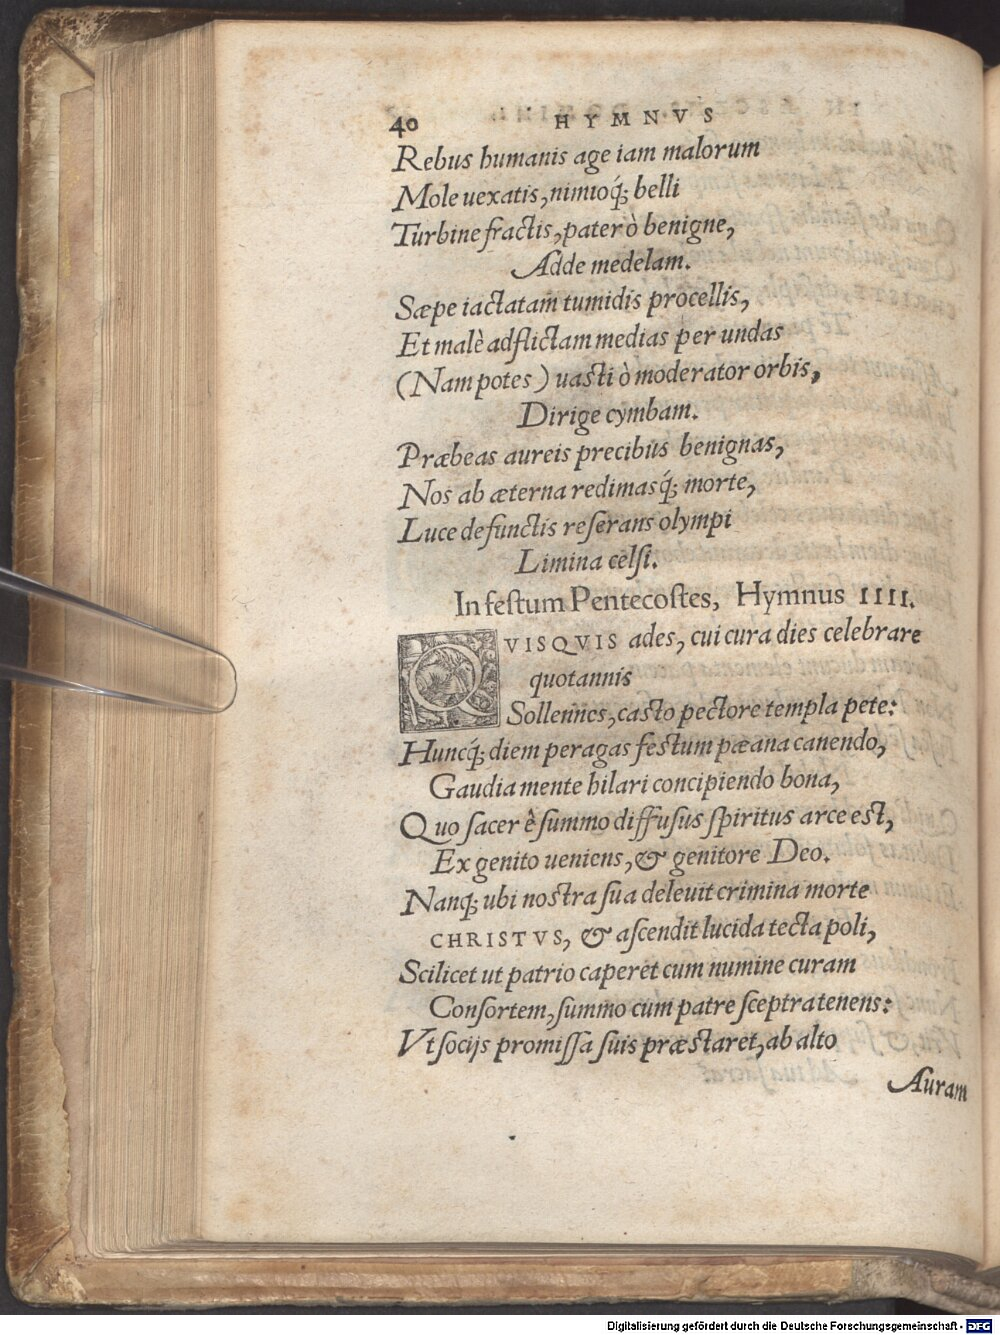 40 HYMNVS
Rebus humanis age iam malorum
Mole uexatis, nimioq́; belli
Turbine fractis, pater ò benigne,
Adde medelam.
Sæpe iactatam tumidis procellis,
Et malè adflictam medias per undas
(Nam potes) uasti ò moderator orbis,
Dirige cymbam.
Præbeas aureis precibus benignas,
Nos ab æterna redimasq́; morte,
Luce defunctis reserans olympi
Limina celsi.
In festum Pentecostes, Hymnus IIII.
QVISQVIS ades, cui cura dies celebrare
quotannis
Sollennes, casto pectore templa pete:
Huncq́; diem peragas festum pæana canendo,
Gaudia mente hilari concipiendo bona,
Quo sacer è summo diffusus spiritus arce est,
Ex genito ueniens, & genitore Deo.
Nanq; ubi nostra sua deleuit crimina morte
CHRISTVS, & ascendit lucida tecta poli,
Scilicet ut patrio caperet cum numine curam
Consortem, summo cum patre sceptra tenens:
Vt socijs promissa suis præstaret, ab alto
Auram
Digitalisierung gefördert durch die Deutsche Forschungsgemeinschaft - DFG